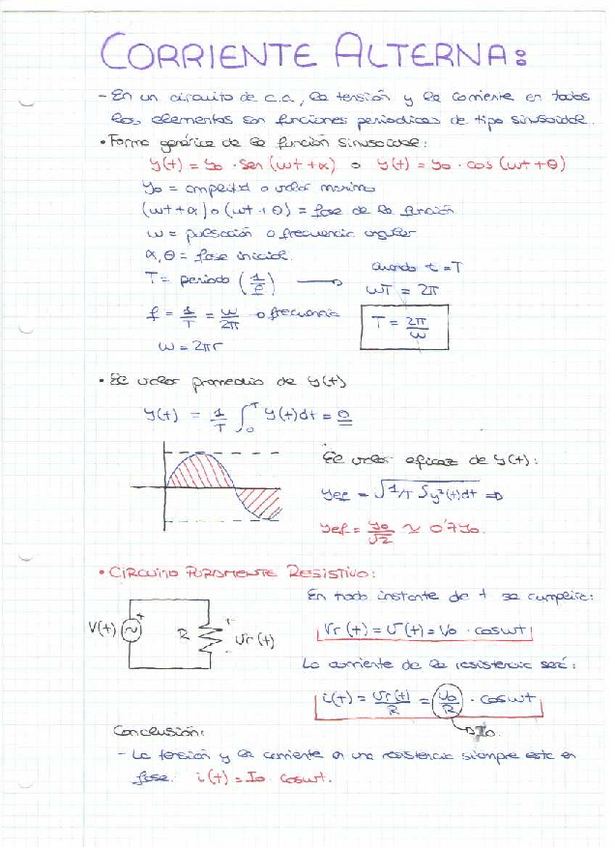 CORRIENTE ALTERNA:
- En un circuito de c.a., la tensión y la corriente en todos
los elementos son funciones periodicas de tipo sinusoidal.
• Forma genérica de la función sinusoidal:
y(t) = y₀ · sen (ωt + α) o y(t) = y₀ · cos (ωt + θ)
y₀ = amplitud o valor maximo
(ωt + α) o (ωt + θ) = fase de la función
ω = pulsación o frecuencia angular
α, θ = fase inicial.
T = periodo (1/f) → cuando t = T
ωT = 2π
f = 1/T = ω/2π o frecuencia
T = 2π/ω
ω = 2πf
• El valor promedio de y(t)
y(t) = 1/T ∫₀ᵀ y(t)dt = 0
El valor eficaz de y(t):
yef = √1/T ∫y²(t)dt ⇒
yef = y₀/√2 ≃ 0'7y₀.
• CIRCUITO PURAMENTE RESISTIVO:
En todo instante de t se cumplira:
V(t) R Vr(t)
Vr(t) = V(t) = V₀ · cosωt
La corriente de la resistencia será:
i(t) = Vr(t)/R = V₀/R · cosωt
I₀.
Conclusión:
- La tensión y la corriente en una resistencia siempre esta en
fase. i(t) = I₀ · cosωt.